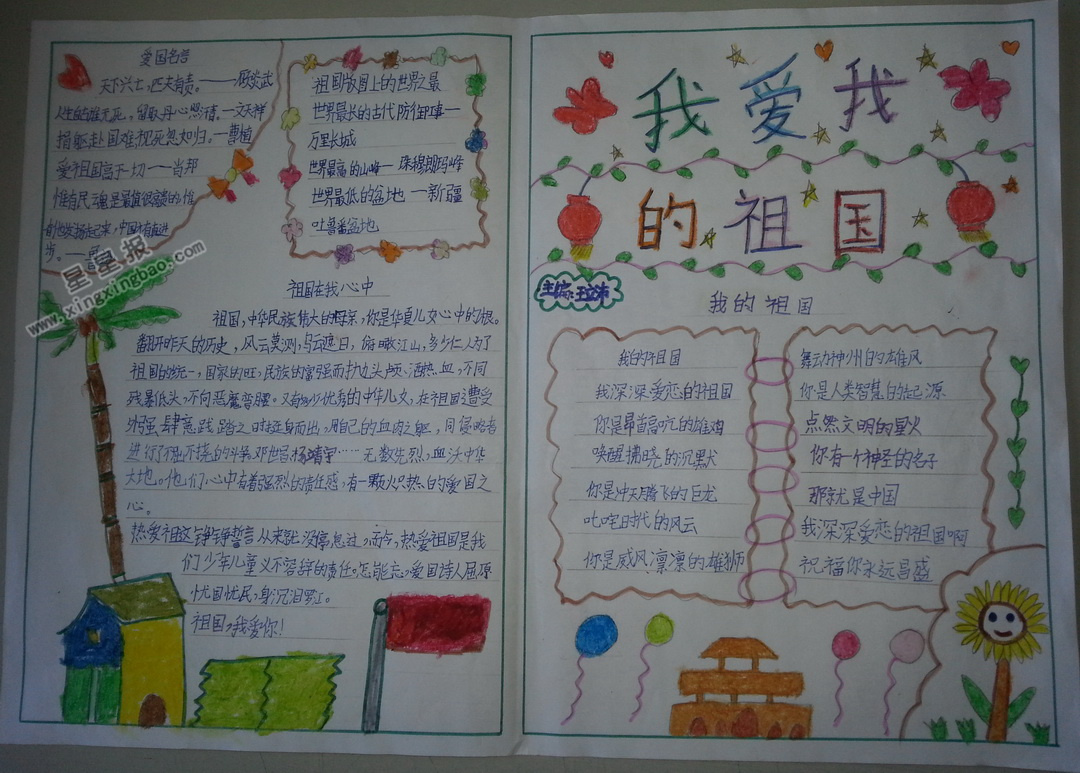 爱国名言
天下兴亡,匹夫有责。——顾炎武
人生自古谁无死,留取丹心照汗青。—文天祥
捐躯赴国难,视死忽如归。—曹植
爱祖国高于一切——肖邦
惟有民魂是最值得宝贵的,惟
有他发扬起来,中国才有真进
步。——
祖国版图上的世界之最
世界最长的古代防御事—
万里长城
世界最高的山峰— 珠穆朗玛峰
世界最低的盆地 —新疆
吐鲁番盆地
星星报
www.xingxingbao.com
祖国在我心中
祖国,中华民族伟大的母亲,你是华夏儿女心中的根。
翻开昨天的历史,风云莫测,乌云遮日,俯瞰江山,多少仁人为了
祖国的统一,国家的旺,民族的富强而抛头颅,洒热血,不同
残暴低头,不向恶魔弯腰。又有多少优秀的中华儿女,在祖国遭受
外强肆意践踏之时挺身而出,用自己的血肉之躯,同侵略者
进行了不屈不挠的斗争邓世昌杨靖宇……无数先烈,血沃中华
大地。他们心中有着强烈的责任感,有一颗火热的爱国之
心。
热爱祖这铮铮誓言从来就没停息过,而今,热爱祖国是我
们少年儿童义不容辞的责任。怎能忘,爱国诗人屈原
忧国忧民,身沉汨罗江。
祖国,我爱你!
我爱我
的祖国
主编:王立沛
我的祖国
我的祖国
我深深爱恋的祖国
你是昂首高吭的雄鸡
唤醒拂晓的沉默
你是冲天腾飞的巨龙
叱咤时代的风云
你是威风凛凛的雄狮
舞动神州的雄风
你是人类智慧的起源
点燃文明的星火
你有一个神圣的名字
那就是中国
我深深爱恋的祖国啊
祝福你永远昌盛